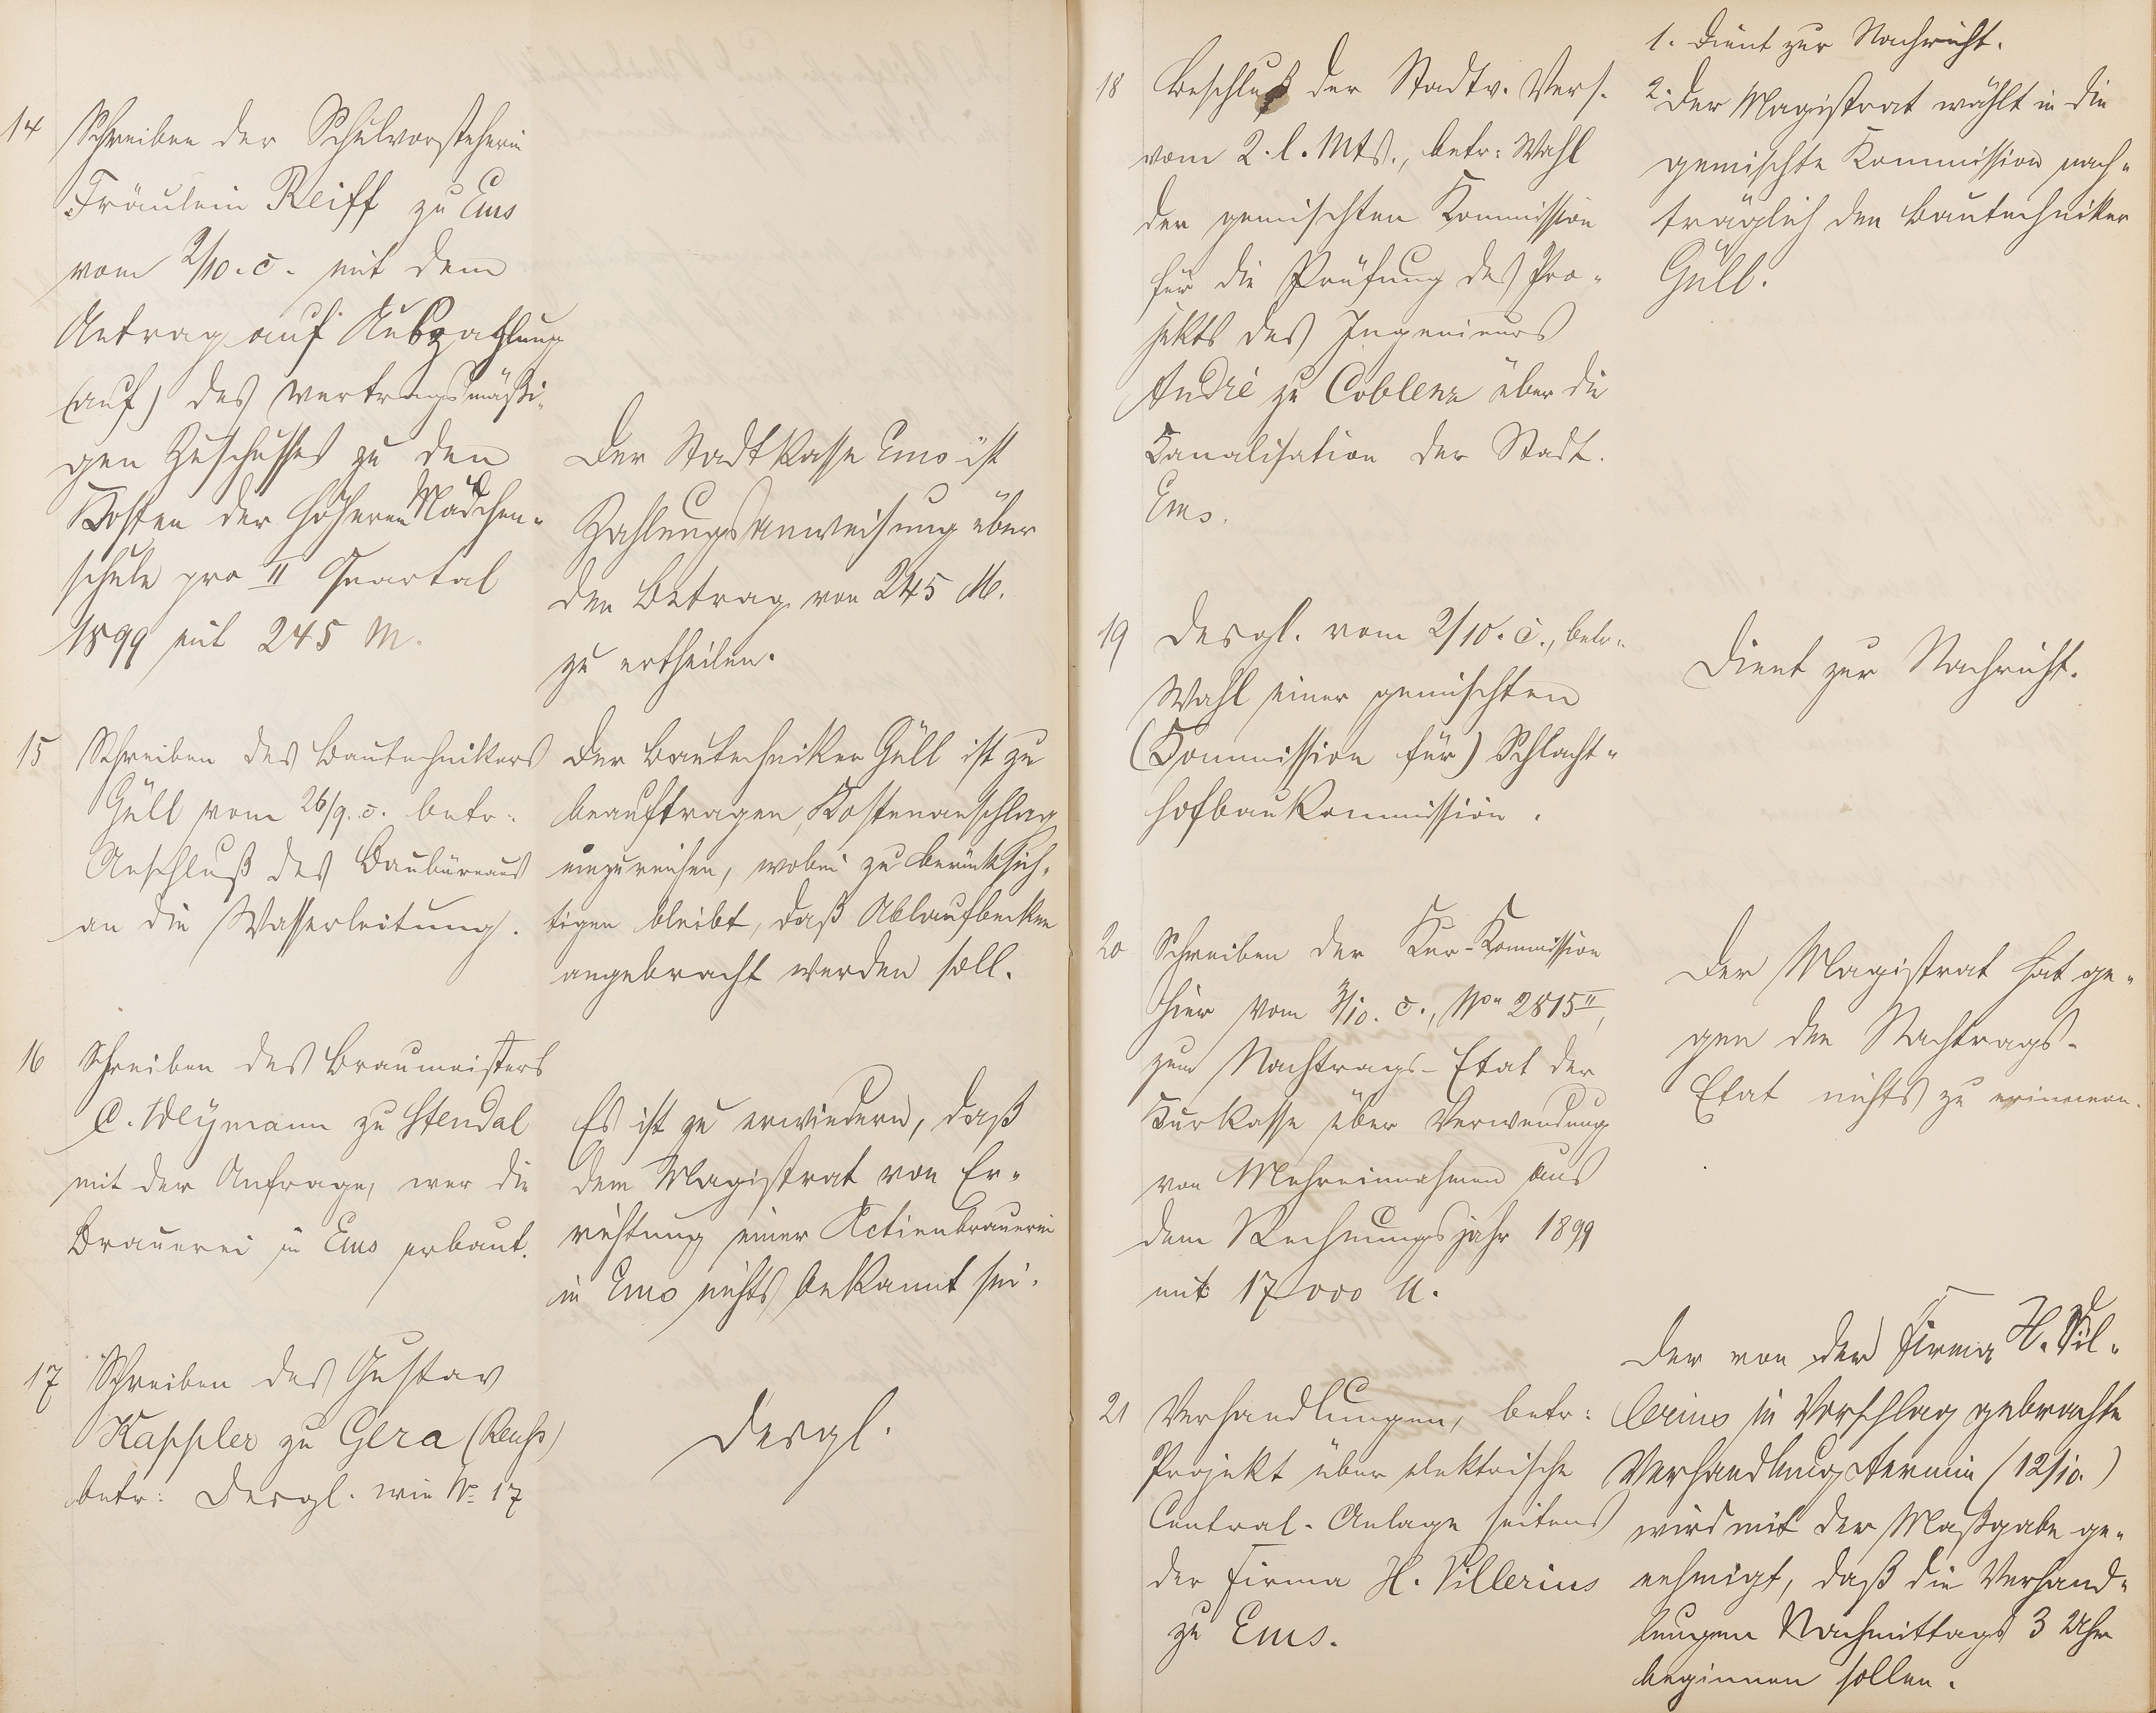 14 Schreiben der Schulvorsteherin
Fräulein Reiff zu Ems
vom 2/10. c. mit dem
Antrag auf Auszahlung
(auf) des vertragsmäßi-
gen Zuschusses zu den
Kosten der höheren Mädchen-
schule pro II Quartal
1899 mit 245 M.
Der Stadtkasse Ems ist
Zahlungsanweisung über
den Betrag von 245 M.
zu ertheilen.
15 Schreiben des Bautechnikers
Güll vom 26/9. c. betr.
Anschluß des Baubüreaus
an die Wasserleitung.
Der Bautechniker Güll ist zu
beauftragen, Kostenanschlag
einzureichen, wobei zu berücksich-
tigen bleibt, daß Ablaufbecken
angebracht werden soll.
16 Schreiben des Braumeisters
C. Weÿmann zu Stendal
mit der Anfrage, wer die
Brauerei in Ems erbaut.
Es ist zu erwiedern, daß
dem Magistrat von Er-
richtung einer Actienbrauerei
in Ems nichts bekannt sei.
17 Schreiben des Gustav
Kappler zu Gera (Reuß)
betr: desgl. wie No 17
desgl.
18 Beschluß der Stadtv. Vers.
vom 2. l. Mts., betr: Wahl
der gemischten Kommission
für die Prüfung des Pro-
jekts des Ingenieurs
André zu Coblenz über die
Kanalisation der Stadt.
Ems.
1. Dient zur Nachricht.
2. Der Magistrat wählt in die
gemischte Kommission nach-
träglich den Bautechniker
Güll.
19 Desgl. vom 2/10. c., betr.
Wahl einer gemischten
(Kommission für) Schlacht-
hofbaukommission.
Dient zur Nachricht.
20 Schreiben der Kur-Kommission
hier vom 3/10. c., No 2815 II,
zum Nachtrags-Etat der
Kurkasse über Verwendung
von Mehreinnahmen aus
dem Rechnungsjahr 1899
mit 17000 M.
Der Magistrat hat ge-
gen den Nachtrags-
Etat nichts zu erinnern.
21 Verhandlungen, betr:
Projekt über elektrische
Central-Anlage seitens
der Firma H. Villerius
zu Ems.
Der von der Firma H. Vil-
lerius in Vorschlag gebrachte
Verhandlungstermin (12/10.)
wird mit der Maßgabe ge-
nehmigt, daß die Verhand-
lungen Nachmittags 3 Uhr
beginnen sollen.